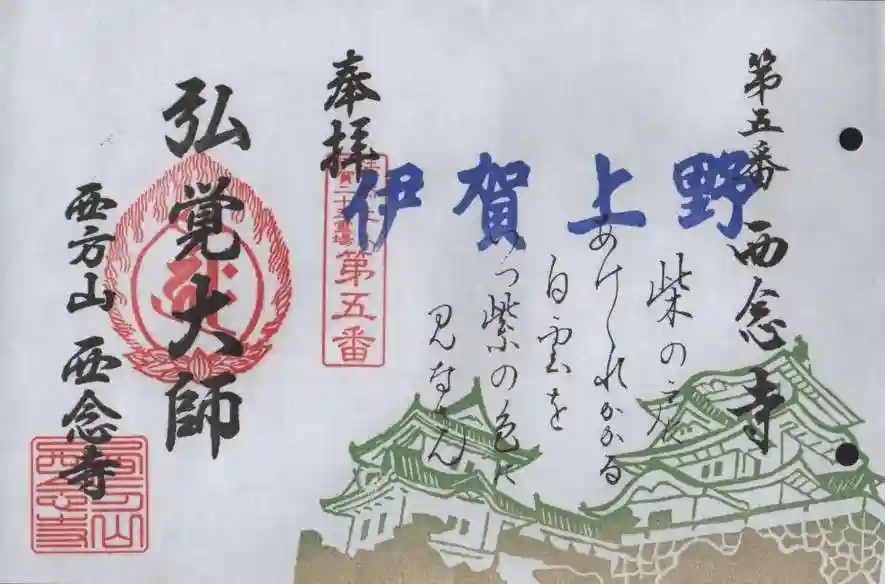 第五番 西念寺
伊賀上野
柴の戸に
あけくれかかる
白雲を
いつ紫の色に
見なさん
奉拝
第五番
弘覚大師
西方山 西念寺